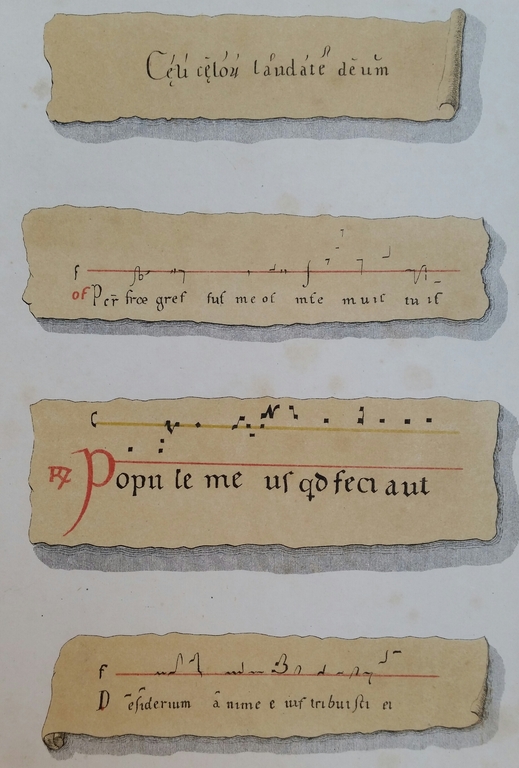 Cęli cęlor laudate dēum
f
of Per frce gref ſuſ me oſ inſe m u iſ tu iſ
C
Popu le me uſ qđ feci aut
f
Deſiderium ānime e uiſ tribuiſti ei